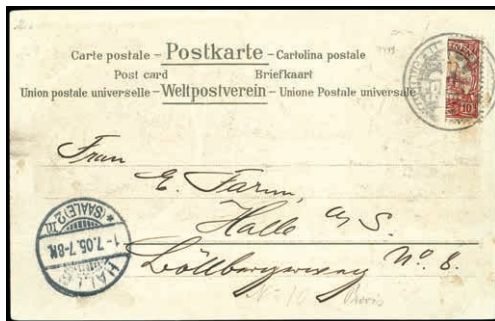 Carte postale – Postkarte – Cartolina postale
Post card Briefkaart
Union postale universelle – Weltpostverein – Unione Postale universale
10
Frau
E. Farun,
Halle a/S.
Böllbergerweg No. 8.
HALLE
(SAALE) 2
1-7.05.7-8N.